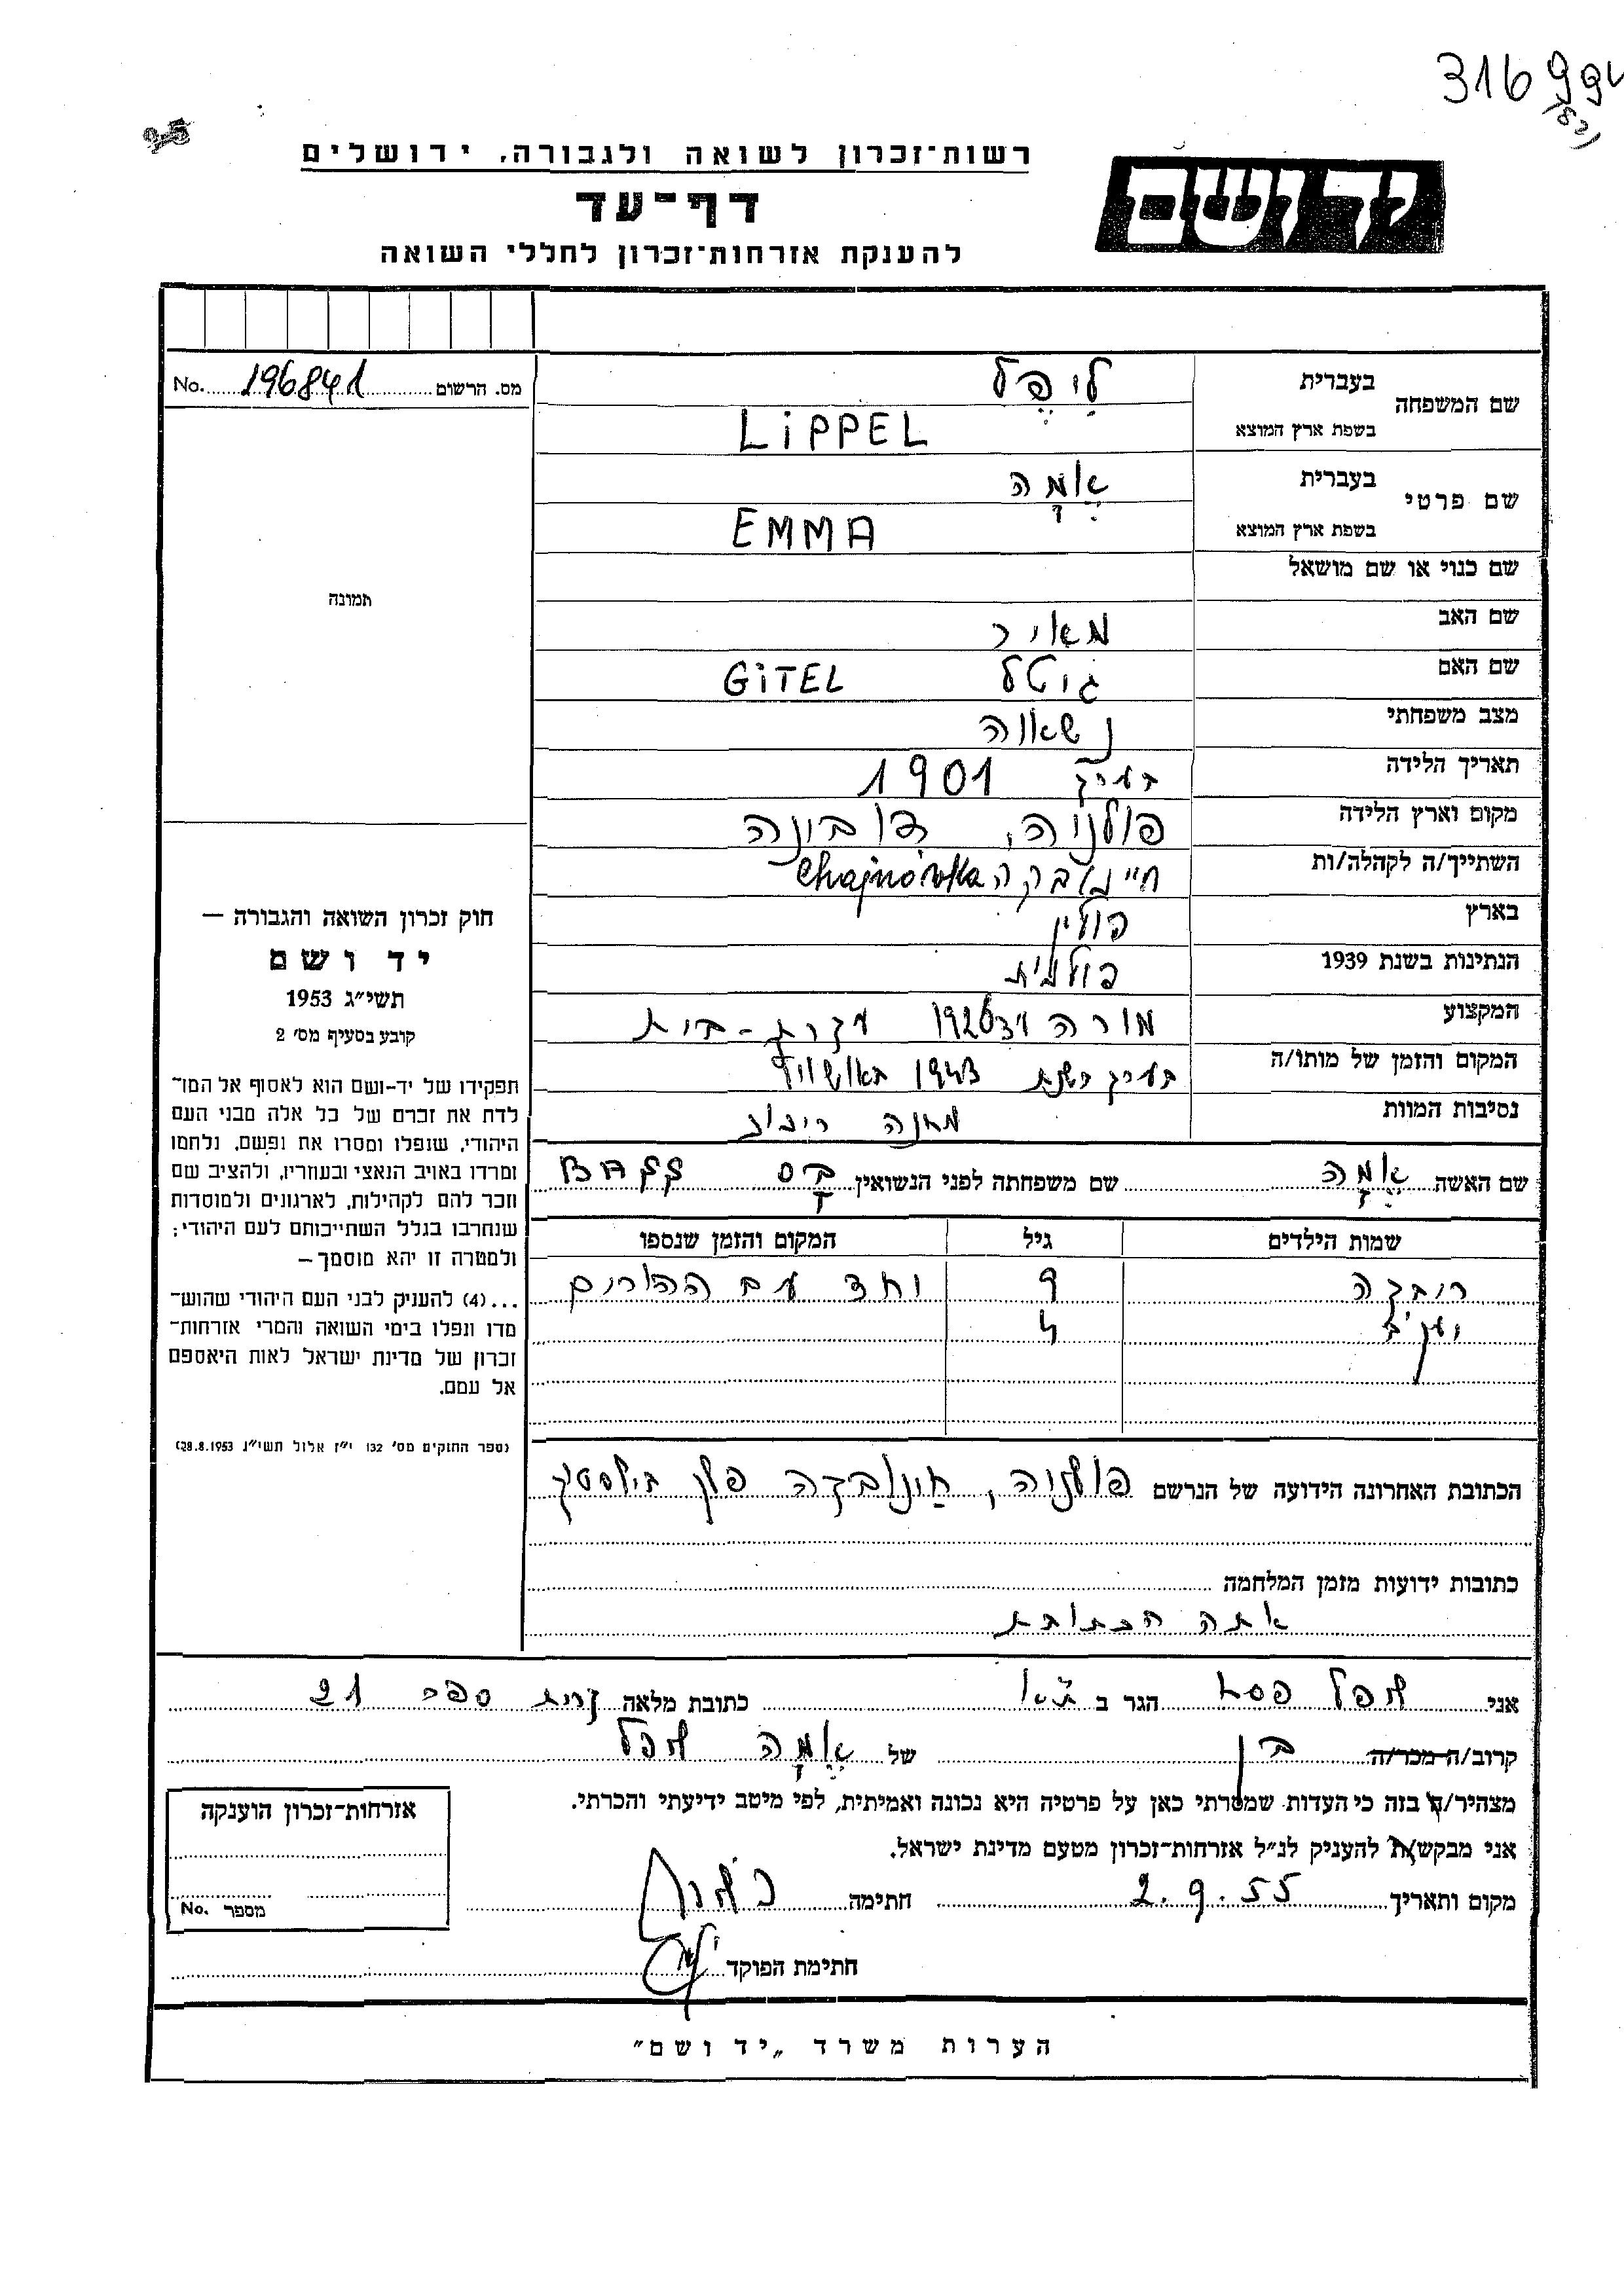 316994
רשות־זכרון לשואה ולגבורה, ירושלים
יד ושם
דף־עד
להענקת אזרחות־זכרון לחללי השואה
מס. הרשום No. 196841
תמונה
שם המשפחה בעברית לִיפֶּל
בשפת ארץ המוצא LiPPEL
שם פרטי בעברית אֶמָה
בשפת ארץ המוצא EMMA
שם כנוי או שם מושאל
שם האב מאיר
שם האם גיטל GiTEL
מצב משפחתי נשואה
תאריך הלידה בערך 1901
מקום וארץ הלידה פולניה,
השתייך/ה לקהלה/ות חיינובקה Chajnówka
בארץ פולין
הנתינות בשנת 1939 פולנית
המקצוע מורה עקרת-בית
המקום והזמן של מותו/ה בערך בשנת 1943 באושוויץ
נסיבות המוות מחנה ריכוז
שם האשה אֶמָה שם משפחתה לפני הנשואין
שמות הילדים גיל המקום והזמן שנספו
רובקה 9 יחד עם ההורים
יעקב 4
הכתובת האחרונה הידועה של הנרשם פולניה, חינובקה פלך ביאלסטוק
כתובות ידועות מזמן המלחמה
אתה הכתובת
חוק זכרון השואה והגבורה —
יד ושם
תשי״ג 1953
קובע בסעיף מס׳ 2
תפקידו של יד-ושם הוא לאסוף אל המו־
לדת את זכרם של כל אלה מבני העם
היהודי, שנפלו ומסרו את נפשם, נלחמו
ומרדו באויב הנאצי ובעוזריו, ולהציב שם
וזכר להם לקהילות, לארגונים ולמוסדות
שנחרבו בגלל השתייכותם לעם היהודי;
ולמטרה זו יהא מוסמך —
...(4) להעניק לבני העם היהודי שהוש־
מדו ונפלו בימי השואה והמרי אזרחות־
זכרון של מדינת ישראל לאות היאספם
אל עמם.
(ספר החוקים מס׳ 132 י״ז אלול תשי״ג 28.8.1953)
אני ליפל פסח הגר ב ת״א כתובת מלאה קרית ספר 21
קרוב/ה מכר/ה בן של אֶמָה ליפל
מצהיר/ה בזה כי העדות שמסרתי כאן על פרטיה היא נכונה ואמיתית, לפי מיטב ידיעתי והכרתי.
אני מבקש/ת להעניק לנ״ל אזרחות־זכרון מטעם מדינת ישראל.
מקום ותאריך 2.9.55 חתימה
חתימת הפוקד
אזרחות־זכרון הוענקה
מספר No.
הערות משרד „יד ושם״